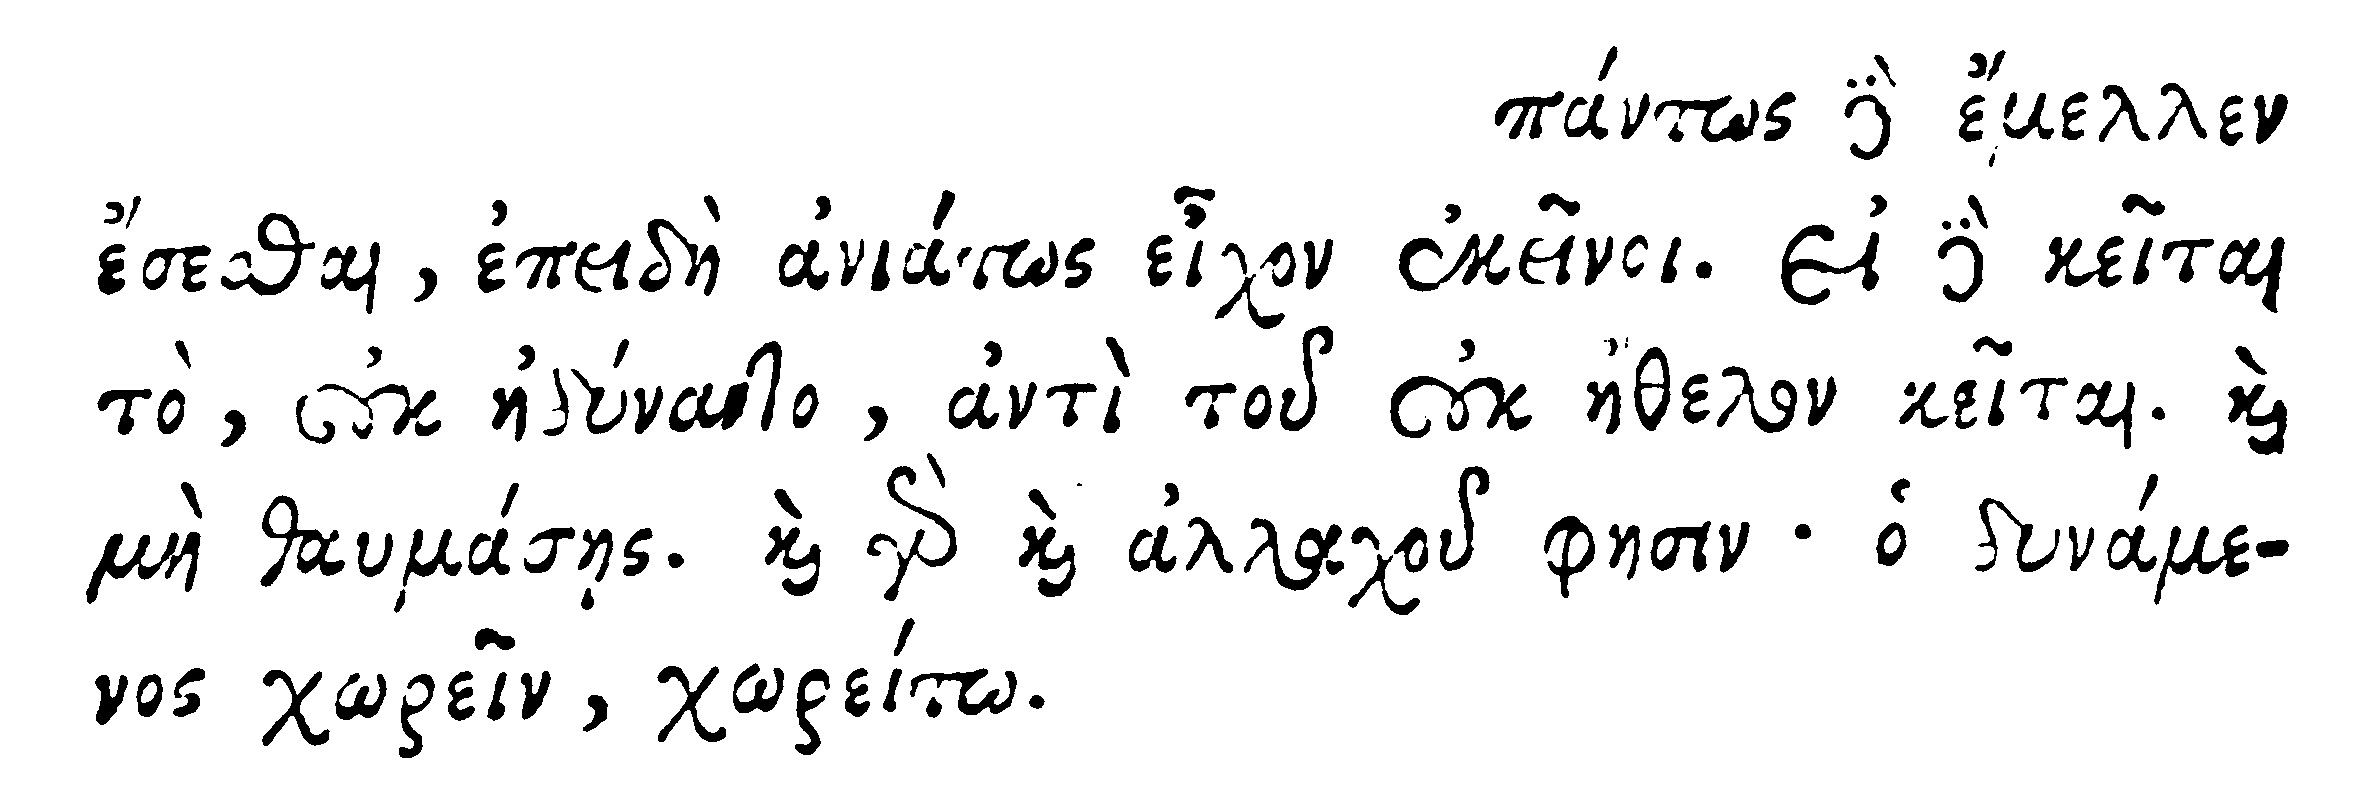 πάντως δὲ ἔμελλεν
ἔσεσθαι, ἐπειδὴ ἀνιάτως εἶχον ἐκεῖνοι. Εἰ δὲ κεῖται
τὸ, οὐκ ἠδύναντο, ἀντὶ τοῦ οὐκ ἤθελον κεῖται. καὶ
μὴ θαυμάσῃς. καὶ γὰρ καὶ ἀλλαχοῦ φησιν · ὁ δυνάμε-
νος χωρεῖν, χωρείτω.